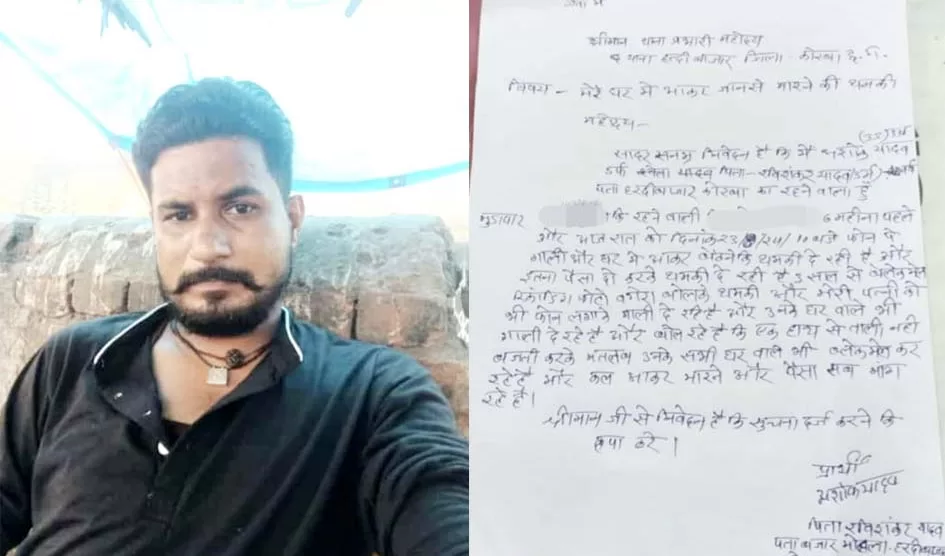 श्रीमान थाना प्रभारी महोदय
थाना हरदीबाजार जिला - कोरबा छ. ग.
विषय - मेरे घर में आकर जान से मारने की धमकी
महोदय -
सादर सनम्र निवेदन है कि मैं अशोक यादव
उर्फ यादव पिता - रविशंकर यादव
पता हरदीबाजार कोरबा का रहने वाला हुँ
मुडापार कि रहने वाली 6 महीना पहले
और आज रात को दिनांक 10 बजे फोन पे
गाली और घर में आकर धमकी दे रही है और
इतना पैसा दो करके धमकी दे रही है 3 साल से ब्लेकमेल
फोटो वगेरा बोलके धमकी और मेरी पत्नी को
भी फोन लगाके गाली दे रहे है और उनके घर वाले भी
गाली दे रहे है और बोल रहे है कि एक हाथ से ताली नही
बजती करके मतलब उनके सभी घर वाले भी ब्लेकमेल कर
रहे है और कल आकर मारने और पैसा सब मांग
रहे है।
श्रीमान जी से निवेदन है कि सुचना दर्ज करने कि
कृपा करे।
प्रार्थी
अशोक यादव
पिता रविशंकर यादव
पता बाजार मोहल्ला हरदीबाजार